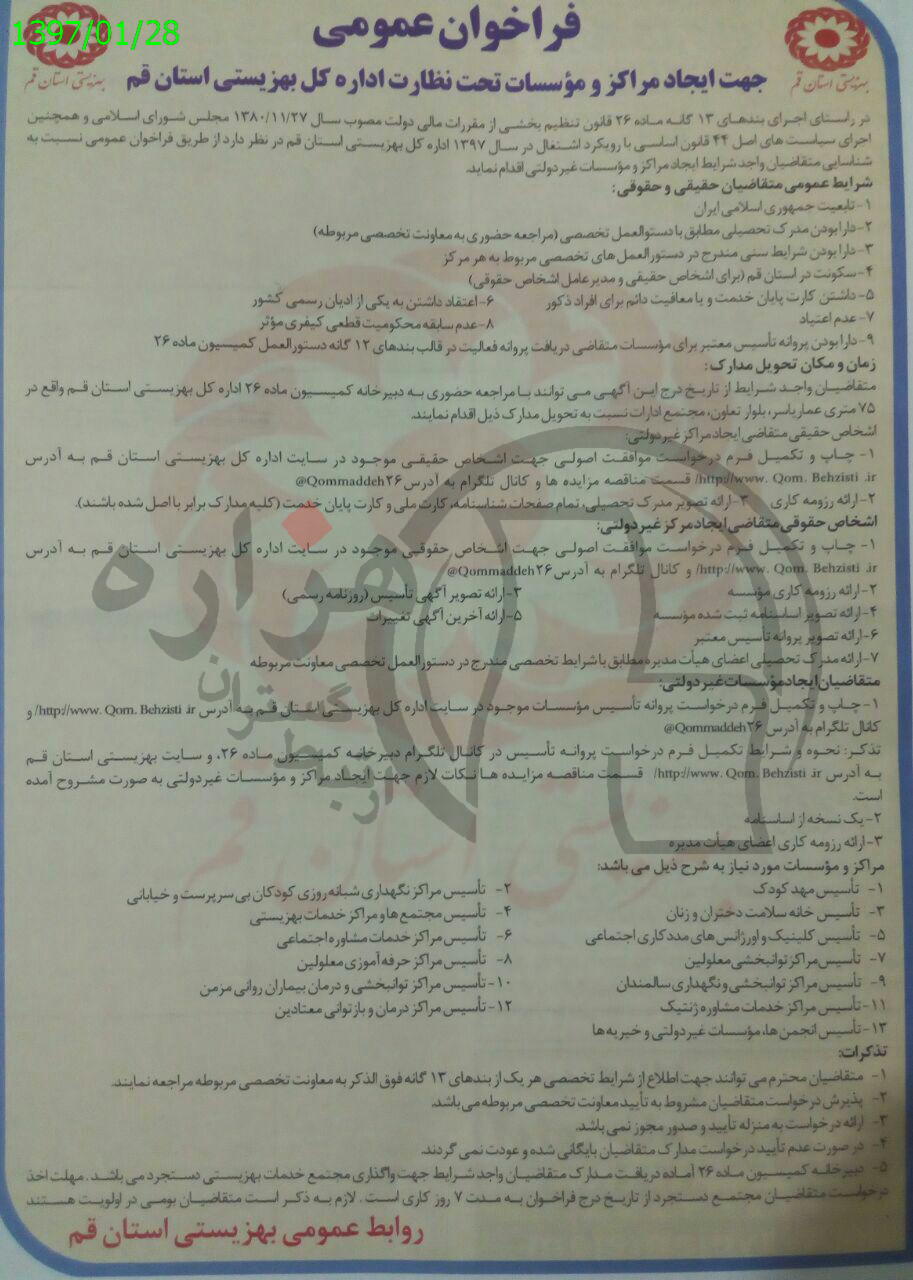 1397/01/28
فراخوان عمومی
بهزیستی استان قم
بهزیستی استان قم
جهت ایجاد مراکز و مؤسسات تحت نظارت اداره کل بهزیستی استان قم
در راستای اجرای بندهای ۱۳ گانه ماده ۲۶ قانون تنظیم بخشی از مقررات مالی دولت مصوب سال ۱۳۸۰/۱۱/۲۷ مجلس شورای اسلامی و همچنین
اجرای سیاست های اصل ۴۴ قانون اساسی با رویکرد اشتغال در سال ۱۳۹۷ اداره کل بهزیستی استان قم در نظر دارد از طریق فراخوان عمومی نسبت به
شناسایی متقاضیان واجد شرایط ایجاد مراکز و مؤسسات غیر دولتی اقدام نماید.
شرایط عمومی متقاضیان حقیقی و حقوقی:
۱-تابعیت جمهوری اسلامی ایران
۲-دارا بودن مدرک تحصیلی مطابق با دستوالعمل تخصصی (مراجعه حضوری به معاونت تخصصی مربوطه)
۳-دارا بودن شرایط سنی مندرج در دستورالعمل های تخصصی مربوط به هر مرکز
۴-سکونت در استان قم (برای اشخاص حقیقی و مدیر عامل اشخاص حقوقی)
۵-داشتن کارت پایان خدمت و یا معافیت دائم برای افراد ذکور ۶-اعتقاد داشتن به یکی از ادیان رسمی کشور
۷-عدم اعتیاد ۸-عدم سابقه محکومیت قطعی کیفری مؤثر
۹-دارا بودن پروانه تأسیس معتبر برای مؤسسات متقاضی دریافت پروانه فعالیت در قالب بندهای ۱۲ گانه دستورالعمل کمیسیون ماده ۲۶
زمان و مکان تحویل مدارک:
متقاضیان واجد شرایط از تاریخ درج این آگهی می توانند با مراجعه حضوری به دبیرخانه کمیسیون ماده ۲۶ اداره کل بهزیستی استان قم واقع در
۷۵ متری عماریاسر، بلوار تعاون، مجتمع ادارات نسبت به تحویل مدارک ذیل اقدام نمایند.
اشخاص حقیقی متقاضی ایجاد مراکز غیر دولتی:
۱- چاپ و تکمیل فرم درخواست موافقت اصولی جهت اشخاص حقیقی موجود در سایت اداره کل بهزیستی استان قم به آدرس
http://www. Qom. Behzisti .ir/ قسمت مناقصه مزایده ها و کانال تلگرام به آدرس Qommaddeh۲۶@
۲-ارائه رزومه کاری ۳-ارائه تصویر مدرک تحصیلی، تمام صفحات شناسنامه، کارت ملی و کارت پایان خدمت (کلیه مدارک برابر با اصل شده باشند).
اشخاص حقوقی متقاضی ایجاد مرکز غیر دولتی:
۱- چاپ و تکمیل فرم درخواست موافقت اصولی جهت اشخاص حقوقی موجود در سایت اداره کل بهزیستی استان قم به آدرس
http://www. Qom. Behzisti .ir/ و کانال تلگرام به آدرس Qommaddeh۲۶@
۲-ارائه رزومه کاری مؤسسه ۳-ارائه تصویر آگهی تأسیس (روزنامه رسمی)
۴-ارائه تصویر اساسنامه ثبت شده مؤسسه ۵-ارائه آخرین آگهی تغییرات
۶-ارائه تصویر پروانه تأسیس معتبر
۷-ارائه مدرک تحصیلی اعضای هیأت مدیره مطابق با شرایط تخصصی مندرج در دستورالعمل تخصصی معاونت مربوطه
متقاضیان ایجاد مؤسسات غیر دولتی:
۱- چاپ و تکمیل فرم درخواست پروانه تأسیس مؤسسات موجود در سایت اداره کل بهزیستی استان قم به آدرس http://www. Qom. Behzisti .ir/ و
کانال تلگرام به آدرس Qommaddeh۲۶@
تذکر: نحوه و شرایط تکمیل فرم درخواست پروانه تأسیس در کانال تلگرام دبیرخانه کمیسیون ماده ۲۶، و سایت بهزیستی استان قم
به آدرس http://www. Qom. Behzisti .ir/ قسمت مناقصه مزایده ها نکات لازم جهت ایجاد مراکز و مؤسسات غیر دولتی به صورت مشروح آمده
است.
۲-یک نسخه از اساسنامه
۳-ارائه رزومه کاری اعضای هیأت مدیره
مراکز و مؤسسات مورد نیاز به شرح ذیل می باشد:
۱- تأسیس مهد کودک ۲- تأسیس مراکز نگهداری شبانه روزی کودکان بی سرپرست و خیابانی
۳- تأسیس خانه سلامت دختران و زنان ۴- تأسیس مجتمع ها و مراکز خدمات بهزیستی
۵- تأسیس کلینیک و اورژانس های مددکاری اجتماعی ۶- تأسیس مراکز خدمات مشاوره اجتماعی
۷- تأسیس مراکز توانبخشی معلولین ۸- تأسیس مراکز حرفه آموزی معلولین
۹- تأسیس مراکز توانبخشی و نگهداری سالمندان ۱۰-تأسیس مراکز توانبخشی و درمان بیماران روانی مزمن
۱۱-تأسیس مراکز خدمات مشاوره ژنتیک ۱۲-تأسیس مراکز درمان و بازتوانی معتادین
۱۳-تأسیس انجمن ها، مؤسسات غیر دولتی و خیریه ها
تذکرات:
۱- متقاضیان محترم می توانند جهت اطلاع از شرایط تخصصی هر یک از بندهای ۱۳ گانه فوق الذکر به معاونت تخصصی مربوطه مراجعه نمایند.
۲- پذیرش درخواست متقاضیان مشروط به تأیید معاونت تخصصی مربوطه می باشد.
۳- ارائه درخواست به منزله تأیید و صدور مجوز نمی باشد.
۴- در صورت عدم تأیید درخواست مدارک متقاضیان بایگانی شده و عودت نمی گردند.
۵- دبیرخانه کمیسیون ماده ۲۶ آماده دریافت مدارک متقاضیان واجد شرایط جهت واگذاری مجتمع خدمات بهزیستی دستجرد می باشد. مهلت اخذ
درخواست متقاضیان مجتمع دستجرد از تاریخ درج فراخوان به مدت ۷ روز کاری است. لازم به ذکر است متقاضیان بومی در اولویت هستند
روابط عمومی بهزیستی استان قم
هزاره
بهزیستی استان قم